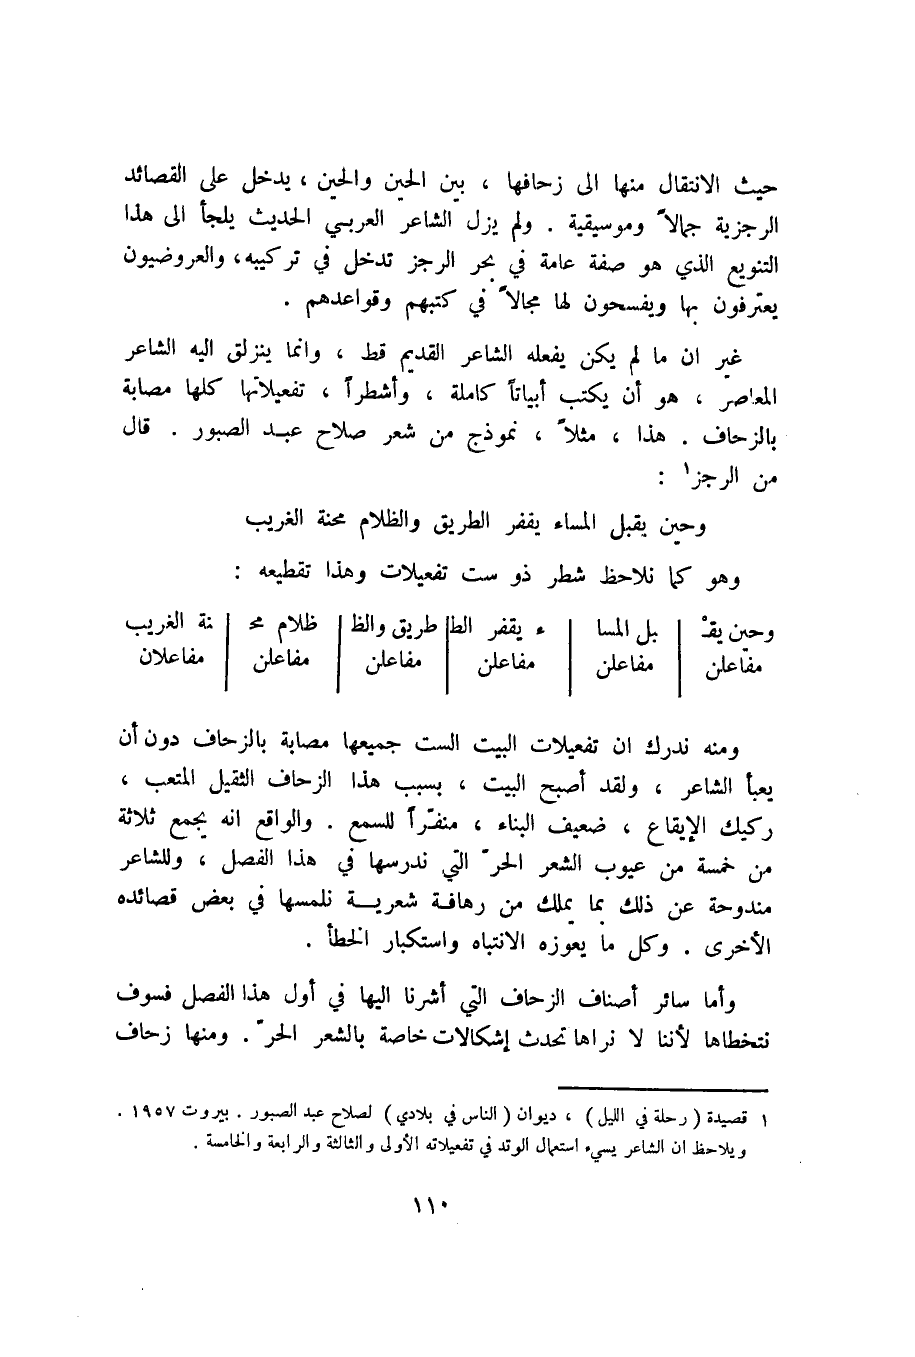 حيث الانتقال منها الى زحافها ، بين الحين والحين ، يدخل على القصائد
الرجزية جمالاً وموسيقية . ولم يزل الشاعر العربي الحديث يلجأ الى هذا
التنويع الذي هو صفة عامة في بحر الرجز تدخل في تركيبه، والعروضيون
يعترفون بها ويفسحون لها مجالاً في كتبهم وقواعدهم .
غير ان ما لم يكن يفعله الشاعر القديم قط ، وانما ينزلق اليه الشاعر
المعاصر ، هو أن يكتب أبياتاً كاملة ، وأشطراً ، تفعيلاتها كلها مصابة
بالزحاف . هذا ، مثلاً ، نموذج من شعر صلاح عبـد الصبور . قال
من الرجز١ :
وحين يقبل المساء يقفر الطريق والظلام محنة الغريب
وهو كما نلاحظ شطر ذو ست تفعيلات وهذا تقطيعه :
وحين يقـْ | بل المسا | ء يقفر الط | طريق والظ | ظلام محـ | نة الغريب
مفاعلن | مفاعلن | مفاعلن | مفاعلن | مفاعلن | مفاعلان
ومنه ندرك ان تفعيلات البيت الست جميعها مصابة بالزحاف دون أن
يعبأ الشاعر ، ولقد أصبح البيت ، بسبب هذا الزحاف الثقيل المتعب ،
ركيك الإيقاع ، ضعيف البناء ، منفّراً للسمع . والواقع انه يجمع ثلاثة
من خمسة من عيوب الشعر الحرّ التي ندرسها في هذا الفصل ، وللشاعر
مندوحة عن ذلك بما يملك من رهافـة شعريـــة نلمسها في بعض قصائده
الأخرى . وكل ما يعوزه الانتباه واستكبار الخطأ .
وأما سائر أصناف الزحاف التي أشرنا اليها في أول هذا الفصل فسوف
نتخطاها لأننا لا نراها تحدث إشكالات خاصة بالشعر الحرّ . ومنها زحاف
١ قصيدة ( رحلة في الليل ) ، ديوان ( الناس في بلادي ) لصلاح عبد الصبور . بيروت ١٩٥٧ .
ويلاحظ ان الشاعر يسيء استعمال الوتد في تفعيلاته الأولى والثالثة والرابعة والخامسة .
١١٠